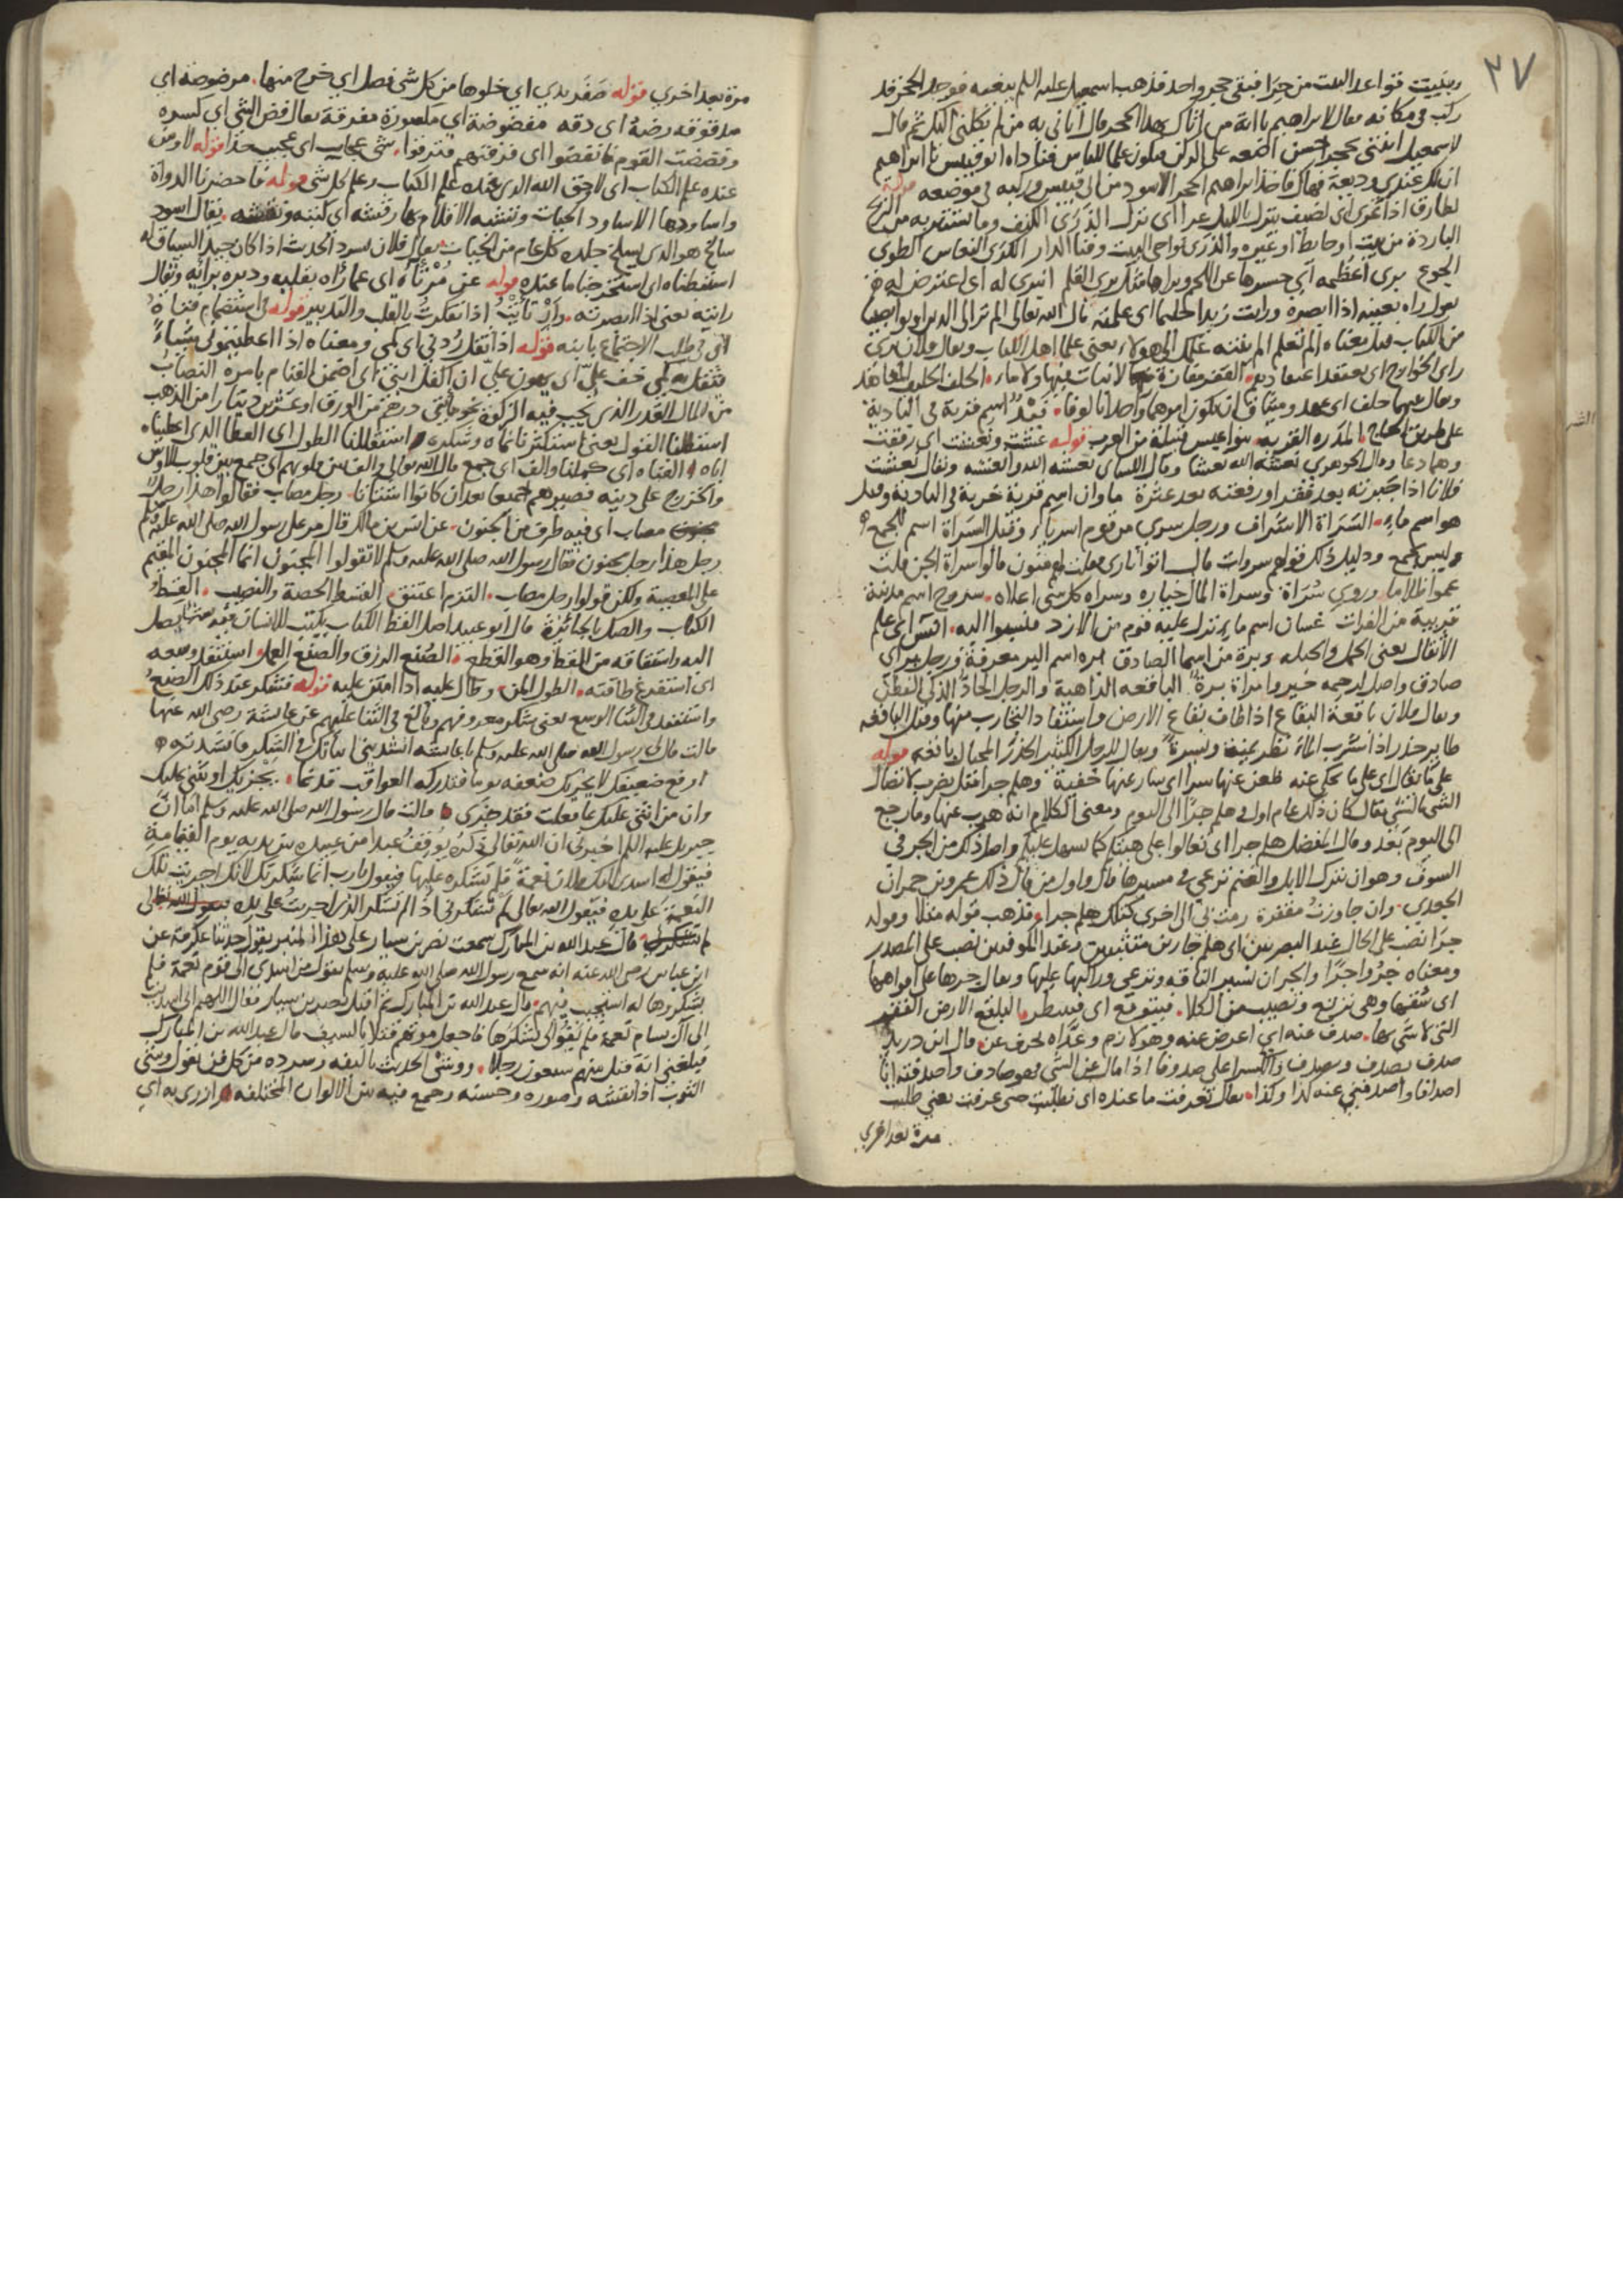 ٣٧
وبنيت قواعد البيت من حرا فبقي حجر واحد فذهب اسمعيل عليه السلم يبغيه فوجد الحجر قد
ركب في مكانه فقال لابراهيم يا ابة من اتاك بهذا الحجر قال اتاني به من لم يكلني اليك ثم قال
لاسمعيل ائتني بحجر حسن اضعه على الركن فيكون علما للناس فناداه ابو قبيس يا ابراهيم
ان لك عندي وديعة فهاك فاخذ ابراهيم الحجر الاسود من ابي قبيس وركبه في موضعه قوله
لطارق اذا عرى اي لضيف ينزل بالليل عرا اي نزل الذرى الكنف وما تستتر به من الريح
الباردة من بيت او حايط او غيره والذرى نواحي البيت وفنا الدار الكرى النعاس الطوى
الجوع برى اعظمه اي حسرها عن اللحم وبراها مثل بري القلم انبرى له اي اعترض له
يقول راه بعينه اذا ابصره ورايت زيدا حليما اي علمته قال الله تعالى الم تر الى الذين اوتوا نصيبا
من الكتاب قيل معناه الم تعلم الم ينته علمك الى هولاء يعني علما اهل الكتاب ويقال فلان يرى
راي الخوارج اي يعتقد اعتقادهم القفر مفازة لا نبات فيها ولا ماء الحلف الحليف المعاهد
ويقال بينهما حلف اي عهد وميثاق ان يكون امرهما واحدا بالوفا فيد اسم قرية في البادية
على طريق الحاج المدره القرية بنو عبس قبيلة من العرب قوله عشت ونعشت اي رفعت
وهما دعا وقال الجوهري نعشه الله نعشا وقال الكسائي نعشه الله وانعشه ويقال نعشت
فلانا اذا جبرته بعد فقر او رفعته بعد عثرة ماوان اسم قرية خربة في البادية وقيل
هو اسم ماء السراة الاشراف ورجل سري من قوم اسرياء وقيل السراة اسم للجمع
وليس بجمع ودليل ذلك قولهم سروات قال اتوا ناري فقلت منون قالوا سراة الجن قلت
عموا ظلاما وروي سراة وسراة المال خياره وسراه كل شي اعلاه سروج اسم مدينة
قريبة من الفرات غسان اسم ماء نزل عليه قوم من الازد فنسبوا اليه انس اي علم
الاثقال يعني الحمل والحبل برة من اسما الصادق بره اسم البر معرفة ورجل بر اي
صادق واصل لرحمه خير وامراة برة الباقعه الذاهية والرجل الحاد الذكي الفطن
ويقال فلان باقعة البقاع اذا طاف بقاع الارض واستفاد التجارب منها وقيل الباقعه
طاير حذر اذا شرب الماء نظر يمينة ويسرة ويقال للرجل الكثير الحذر المحتال باقعه قوله
على ما يقال اي على ما يحكي عنه ظعن عنها سرا اي سار عنها خفية وهلم جرا مثل يضرب لاتصال
الشي بالشي يقال كان ذلك عام اول وهلم جرا الى اليوم ومعنى الكلام انه هرب عنها وما رجع
الى اليوم بعد وقال المفضل هلم جرا اي تعالوا على هينتكم كما يسهل عليكم واصل ذلك من الجر في
السوق وهو ان تترك الابل والغنم ترعى في مسيرها قال واول من قال ذلك عمرو بن حمران
الجعدي وان جاوزت مقفرة رمت بي الى اخرى كتلك هلم جرا فذهب قوله مثلا وقوله
جرا نصب على الحال عند البصريين اي هلم جارين متثبتين وعند الكوفيين نصب على المصدر
ومعناه جروا جرا والجر ان تسير الناقه وترعى وراكبها عليها ويقال جرها على افواهها
اي سقها وهي ترتع وتصيب من الكلا فيتوقع اي فينتظر البلقع الارض القفر
التي لا شي بها صدف عنه اي اعرض عنه وهو لازم وعداه بحرف عن قال ابن دريد
صدف يصدف ويصدف والكسر اعلى صدوفا اذا مال عن الشي فهو صادف واصدفته انا
اصدافا واصدفني عنه كذا وكذا يقال تعرفت ما عنده اي تطلبت حتى عرفت يعني طلبت
مرة بعد اخرى
مرة بعد اخري قوله صفر يدي اي خلوها من كل شي فصل اي خرج منها مرضوضة اي
مدقوقه رضه اي دقه مفضوضة اي مكسورة مفرقة يقال فض الشي اي كسره
وفضضت القوم فانفضوا اي فرقتهم فتفرقوا شي عجاب اي عجيب جدا قوله لا ومن
عنده علم الكتاب اي لا وحق الله الذي عنده علم الكتاب وعلم كل شي قوله فاحضرنا الدواة
واساودها الاساود الحيات وتشبه الاقلام بها رقشه اي كتبه ونقشه يقال اسود
سالخ هو الذي يسلخ جلده كل عام من الحيات يقال فلان يسرد الحديث اذا كان جيد السياق له
استبطناه اي استخرجنا ما عنده قوله عن مرتاه اي عما راه بقلبه ودبره برائه ويقال
رايته يعني اذا ابصرته وارتايته اذا تفكرت بالقلب والتدبير قوله في استضمام فتاه
اي في طلب الاجتماع بابنه قوله اذا ثقل ردني اي كمي ومعناه اذا اعطيتموني شياء
يثقل به كمي خف علي اي يهون علي ان اكفل ابني اي اضمن القيام بامره النصاب
من المال القدر الذي يجب فيه الزكوة نحو مائتي درهم من الورق او عشرين دينارا من الذهب
استطلنا القول يعني استكثرنا ثناه وشكره استقللنا الطول اي العطا الذي اعطيناه
اياه الفناه اي جعلنا والف اي جمع قال الله تعالى والف بين قلوبهم اي جمع بين قلوب الاوس
والخزرج على دينه فصيرهم جميعا بعد ان كانوا اشتاتا رجل مصاب فقالوا هذا رجل
مجنون مصاب اي فيه طرف من الجنون عن انس بن مالك قال مر على رسول الله صلى الله عليه وسلم
رجل هذا رجل مجنون فقال رسول الله صلى الله عليه وسلم لا تقولوا المجنون انما المجنون المقيم
على المعصية ولكن قولوا رجل مصاب التزم اعتنق القسط الحصة والنصيب القط
الكتاب والصك بالجائزة قال ابو عبيد اصل القط الكتاب يكتب للانسان فيه شي يصل
اليه واشتقاقه من القط وهو القطع الصنع الرزق والصنع العمل استنفد وسعه
اي استفرغ طاقته الطول المن وطال عليه اذا امتن عليه قوله فتشكر عند ذلك الصنع
واستنفد في الثنا الوسع يعني شكر معروفهم وبالغ في الثنا عليهم عن عايشة رضى الله عنها
قالت قال لي رسول الله صلى الله عليه وسلم يا عايشه انشديني ابياتك في الشكر فانشدته
ارفع ضعيفك لا يحر بك ضعفه يوما فتدركه العواقب قد نما يجزيك او يثني عليك
وان من اثنى عليك بما فعلت فقد جزى قالت قال رسول الله صلى الله عليه وسلم اما ان
جبريل عليه السلم اخبرني ان الله تعالى ذكره يوقف عبدا من عبيده بين يديه يوم القيامة
فيقول له اسدى اليك فلان نعمة فلم تشكره عليها فيقول يا رب انما شكرتك لانك اجريت تلك
النعمة على يده فيقول الله تعالى لم تشكرني اذ لم تشكر الذي اجريت على يده فيقول الله تعالى
لم تشكرني قال عبد الله بن المبارك سمعت نصر بن سيار على هذا المنبر يقول حدثنا عكرمة عن
ابن عباس رضى الله عنه انه سمع رسول الله صلى الله عليه وسلم يقول من اسدى الى قوم نعمة فلم
يشكروها له استجيب فيهم قال عبد الله بن المبارك ثم اقبل نصر بن سيار فقال اللهم اني اسديت
الى ال بسام نعمة فلم يقوموا لي بشكرها فاجعل موتهم قتلا بالسيف قال عبد الله بن المبارك
فبلغني انه قتل منهم سبعون رجلا ووشى الحديث تاليفه وسرده من كل فن يقول وشي
الثوب اذا نقشه وصوره وحسنه وجمع فيه من الالوان المختلفه ازرى به اي